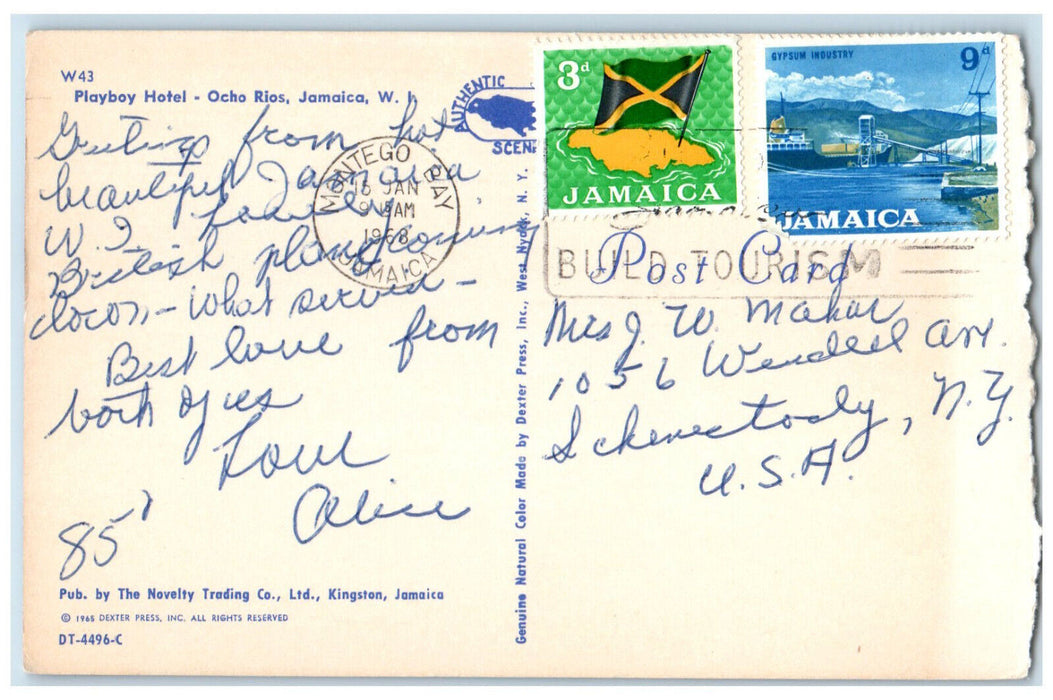 W43
Playboy Hotel - Ocho Rios, Jamaica, W. I.
AUTHENTIC
SCEN
Greetings from hot
beautiful Jamaica
W. I.
British plane coming
down - what service -
Best love from
both of us
Love
Alice
85°
Pub. by The Novelty Trading Co., Ltd., Kingston, Jamaica
© 1965 DEXTER PRESS, INC. ALL RIGHTS RESERVED
DT-4496-C
MONTEGO BAY
15 JAN
9 15 AM
1968
JAMAICA
Genuine Natural Color Made by Dexter Press, Inc., West Nyack, N. Y.
3d
JAMAICA
GYPSUM INDUSTRY
9d
JAMAICA
BUILD TOURISM
Post Card
Mrs J. W. Mahar
1056 Wendell Ave.
Schenectady, N.Y.
U.S.A.